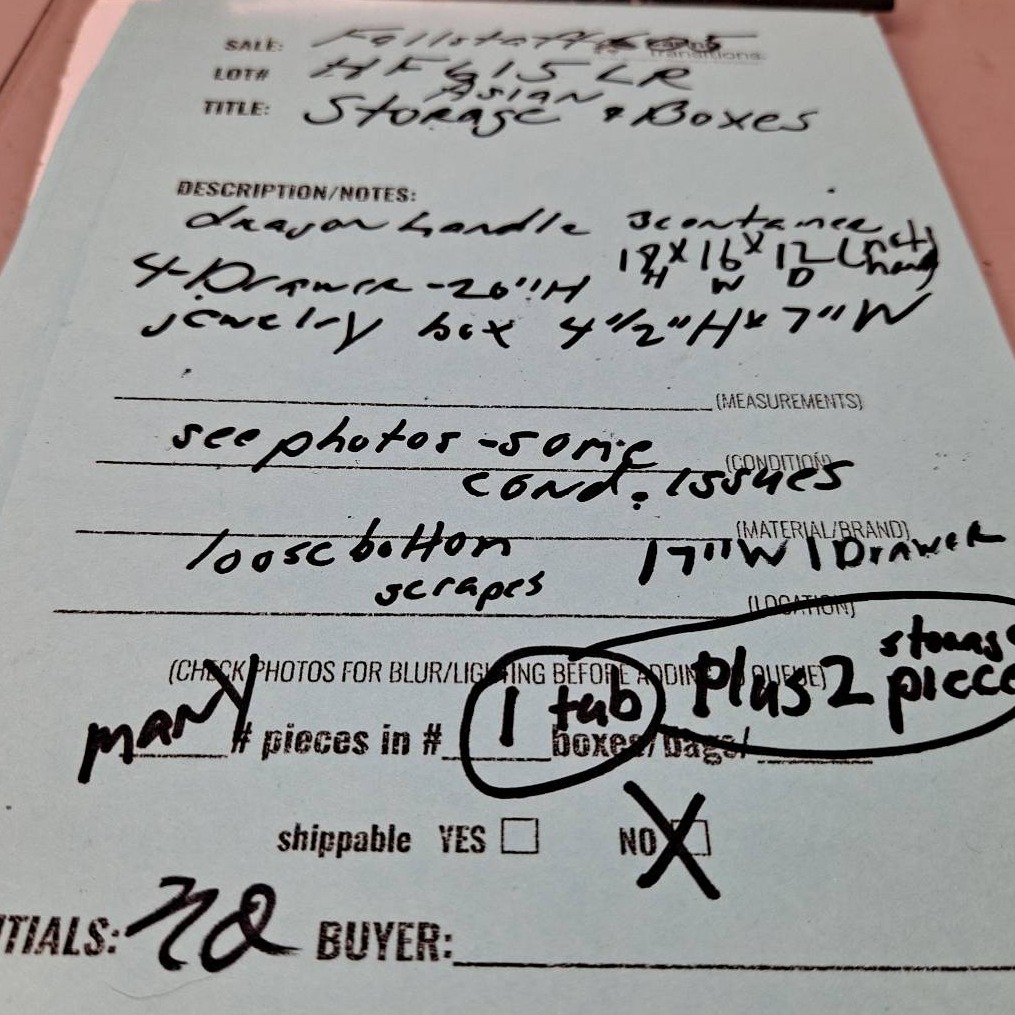 SALE: Fallstaff
Transitions
LOT# HF 615 LR
ASIAN
TITLE: Storage & Boxes
DESCRIPTION/NOTES:
dragon handle 3container
18 x 16 x 12
H W D
4-Drawer -20"H
jewelry box 4"/2"H x 7"W
(MEASUREMENTS)
see photos - some
(CONDITION)
cond. issues
(MATERIAL/BRAND)
loose bottom 17"W 1 Drawer
scrapes
(LOCATION)
(CHECK PHOTOS FOR BLUR/LIGHTING BEFORE ADDING QUEUE)
plus 2 storage piece
many # pieces in # 1 tub boxes/bags/
shippable YES NO X
TIALS: BUYER: